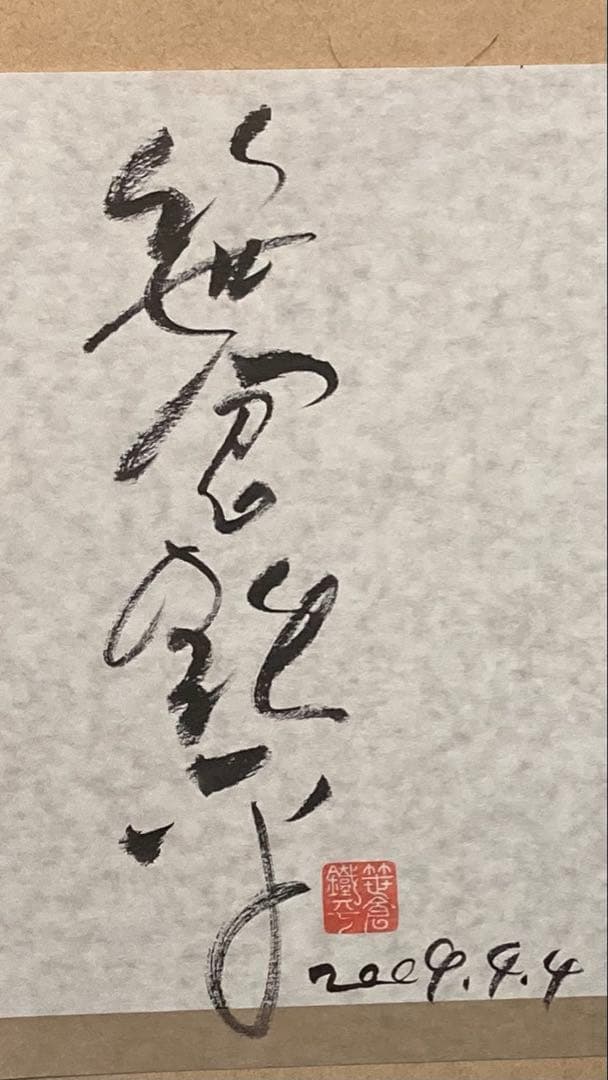 笹倉鉄平
笹倉
鐵平
2009.4.4